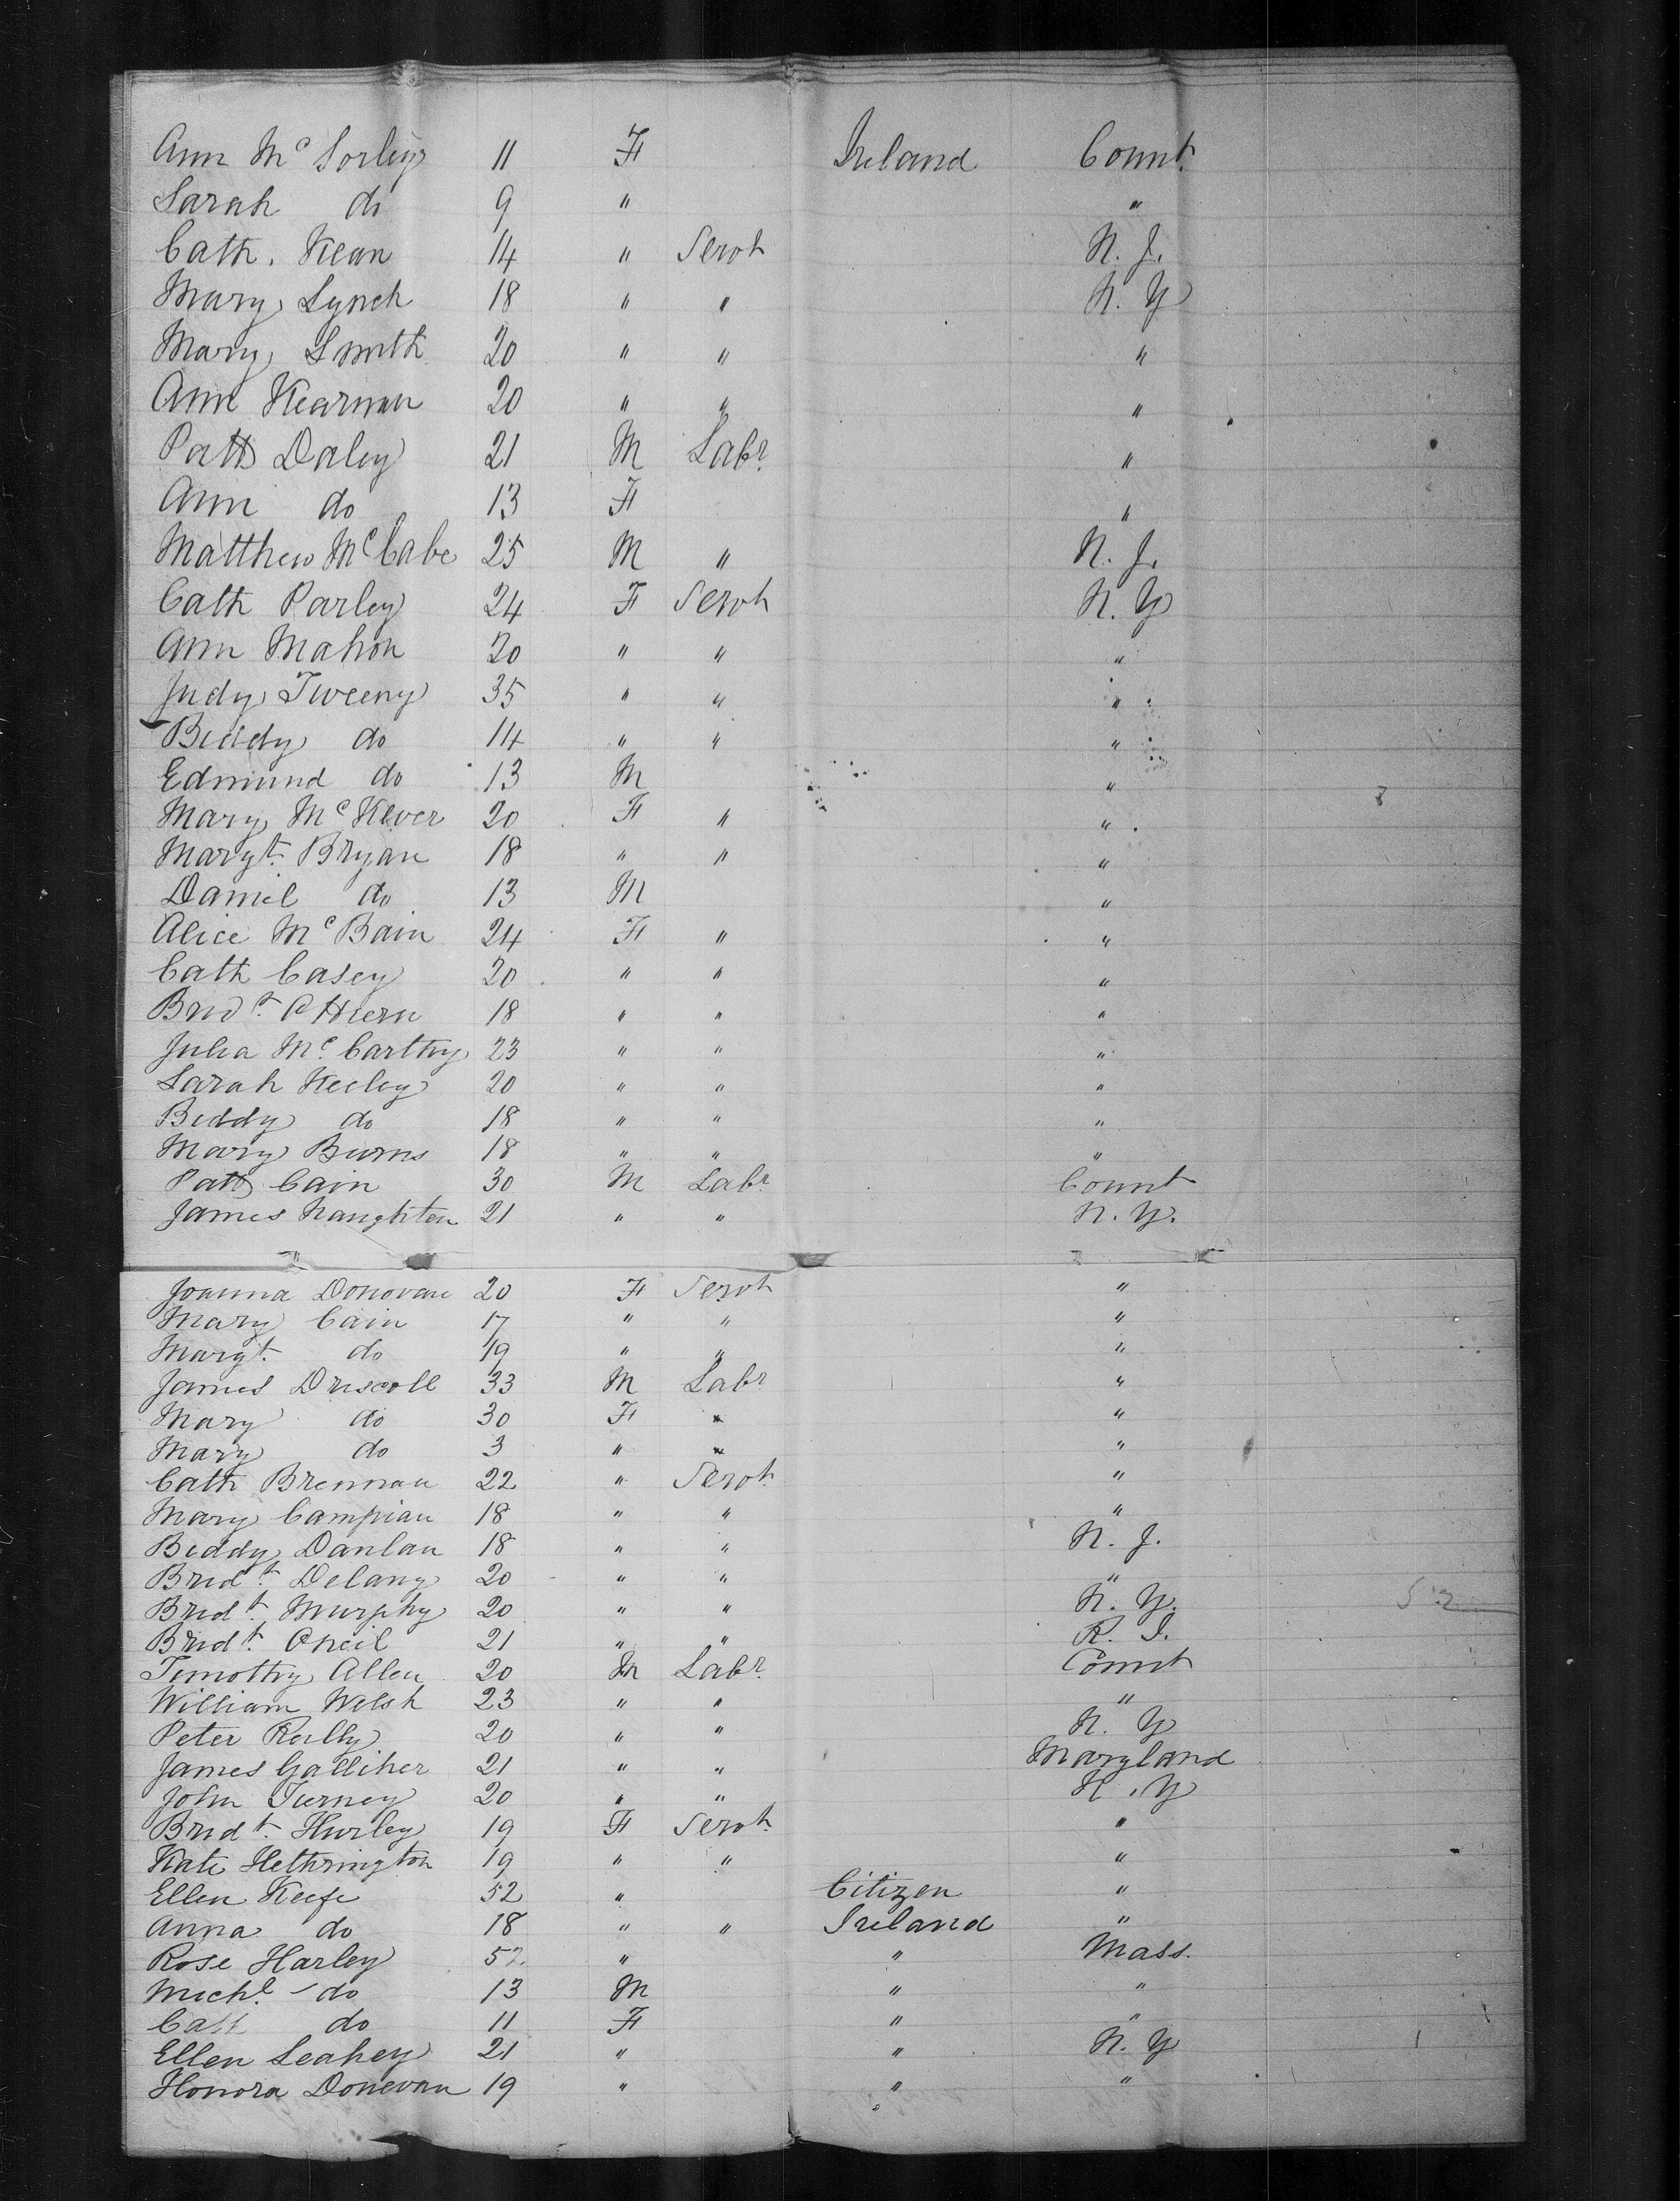 Ann McSorley 11 F Ireland Connt.
Sarah do 9 " "
Cath. Kean 14 " Servt N. J.
Mary Lynch 18 " " N. Y
Mary Smith 20 " " "
Ann Kearnan 20 " " "
Patt Daley 21 M Labr. "
Ann do 13 F "
Matthew McCabe 25 M " N. J.
Cath Parley 24 F Servt N. Y
Ann Mahon 20 " " "
Judy Tweeny 35 " " "
Biddy do 14 " " "
Edmund do 13 M "
Mary McKever 20 F " "
Margt. Bryan 18 " " "
Daniel do 13 M "
Alice McBain 24 F " "
Cath Casey 20 " " "
Bridt. OHern 18 " " "
Julia Mc.Carthy 23 " " "
Sarah Keeley 20 " " "
Biddy do 18 " " "
Mary Burns 18 " " "
Patt Cain 30 M Labr. Connt
James Naughten 21 " " N. Y.
Joanna Donovan 20 F Servt "
Mary Cain 17 " " "
Margt. do 19 " " "
James Driscoll 33 M Labr "
Mary do 30 F " "
Mary do 3 " " "
Cath Brennan 22 " Servt. "
Mary Campian 18 " " "
Biddy Danlan 18 " " N. J.
Bridt. Delany 20 " " "
Bridt. Murphy 20 " " N. Y.
Bridt. Oneil 21 " " R. I.
Timothy Allen 20 M Labr. Connt
William Welsh 23 " " "
Peter Reilly 20 " " N. Y
James Galliher 21 " " Maryland
John Turney 20 " " N. Y
Bridt. Hurley 19 F Servt. "
Kate Hethrington 19 " " "
Ellen Keefe 52 " Citizen "
Anna do 18 " " Ireland "
Rose Harley 52 " " Mass.
Michl. do 13 M " "
Cath do 11 F " "
Ellen Leahey 21 " " N. Y
Honora Donevan 19 " " "